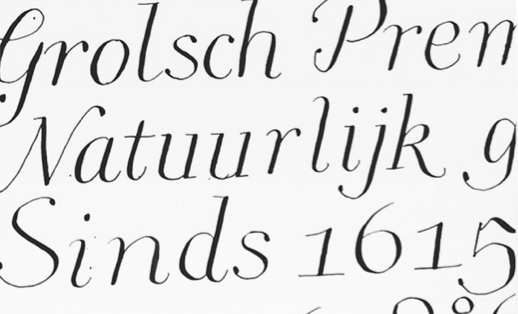 Grolsch Prem
Natuurlijk g
Sinds 1615